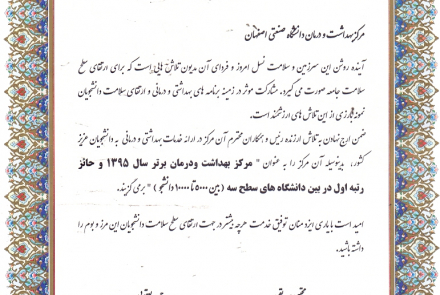 مرکز بهداشت و درمان دانشگاه صنعتی اصفهان
آینده روشن این سرزمین و سلامت نسل امروز و فردای آن مدیون تلاش هایی است که برای ارتقای سطح
سلامت جامعه صورت می گیرد. مشارکت موثر در زمینه برنامه های بهداشتی و درمانی و ارتقای سلامت دانشجویان
نمونه بارزی از این تلاش های ارزشمند است.
ضمن ارج نهادن به تلاش ارزنده رئیس و همکاران محترم آن مرکز در ارائه خدمات بهداشتی و درمانی به دانشجویان عزیز
کشور، بدینوسیله آن مرکز را به عنوان " مرکز بهداشت ودرمان برتر سال ۱۳۹۵ و حائز
رتبه اول در بین دانشگاه های سطح سه (بین ۵۰۰۰ تا ۱۰۰۰۰ دانشجو ) " بر می گزیند.
امید است با یاری ایزد منان توفیق خدمت هرچه بیشتر در جهت ارتقای سطح سلامت دانشجویان این مرز و بوم را
داشته باشید.